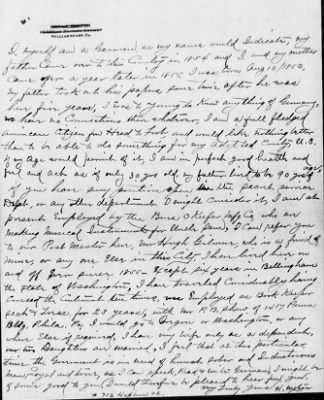 WILLIAMSPORT, PA.
I, myself am a German, as my name would Indicate, my
father Came over to this Country in 1854 and I and my mother
Came over a year later in 1855, I was born Aug 10, 1852,
my father took out his papers soon after he was
here five years, I was to young to Know anything of Germany,
we have no Connections there whatever, I am a full fledged
American Citizen from Head to Foot and would like nothing better
than to be able to do something for my adopted Country, U.S.
if my age would permit of it, I am in perfect good health and
feel and act as if only 30 yrs old my father lived to be 90 yrs
if you have any position open in the search service
Dept, or any other department I might Consider it, I am at
present Employed by the
making Musical Instruments for Uncle Sam, I Can refer you
to our Post Master here, Mr Hugh Gilmore, who is a friend of
mine, or any one Else in this City, I have lived here on
and off Ever since 1855 - Except six years in Bellingham
the State of Washington, I have traveled Considerably having
crossed the Continent ten times, was Employed as Book Keeper
for 25 years, with Mr P. B.
Bldg, Phila. Pa, I would go to Oregon or Washington or any
where Else if required, I have my wife only as a dependent,
our two Daughters are married, I feel that at this particular
time the Government is in need of Honest sober and Industrious
men, Loyal and sure, as I can speak, Read & write German, I might be
of some good to you, I would therefore be pleased to hear from you.
Very Truly yours H.